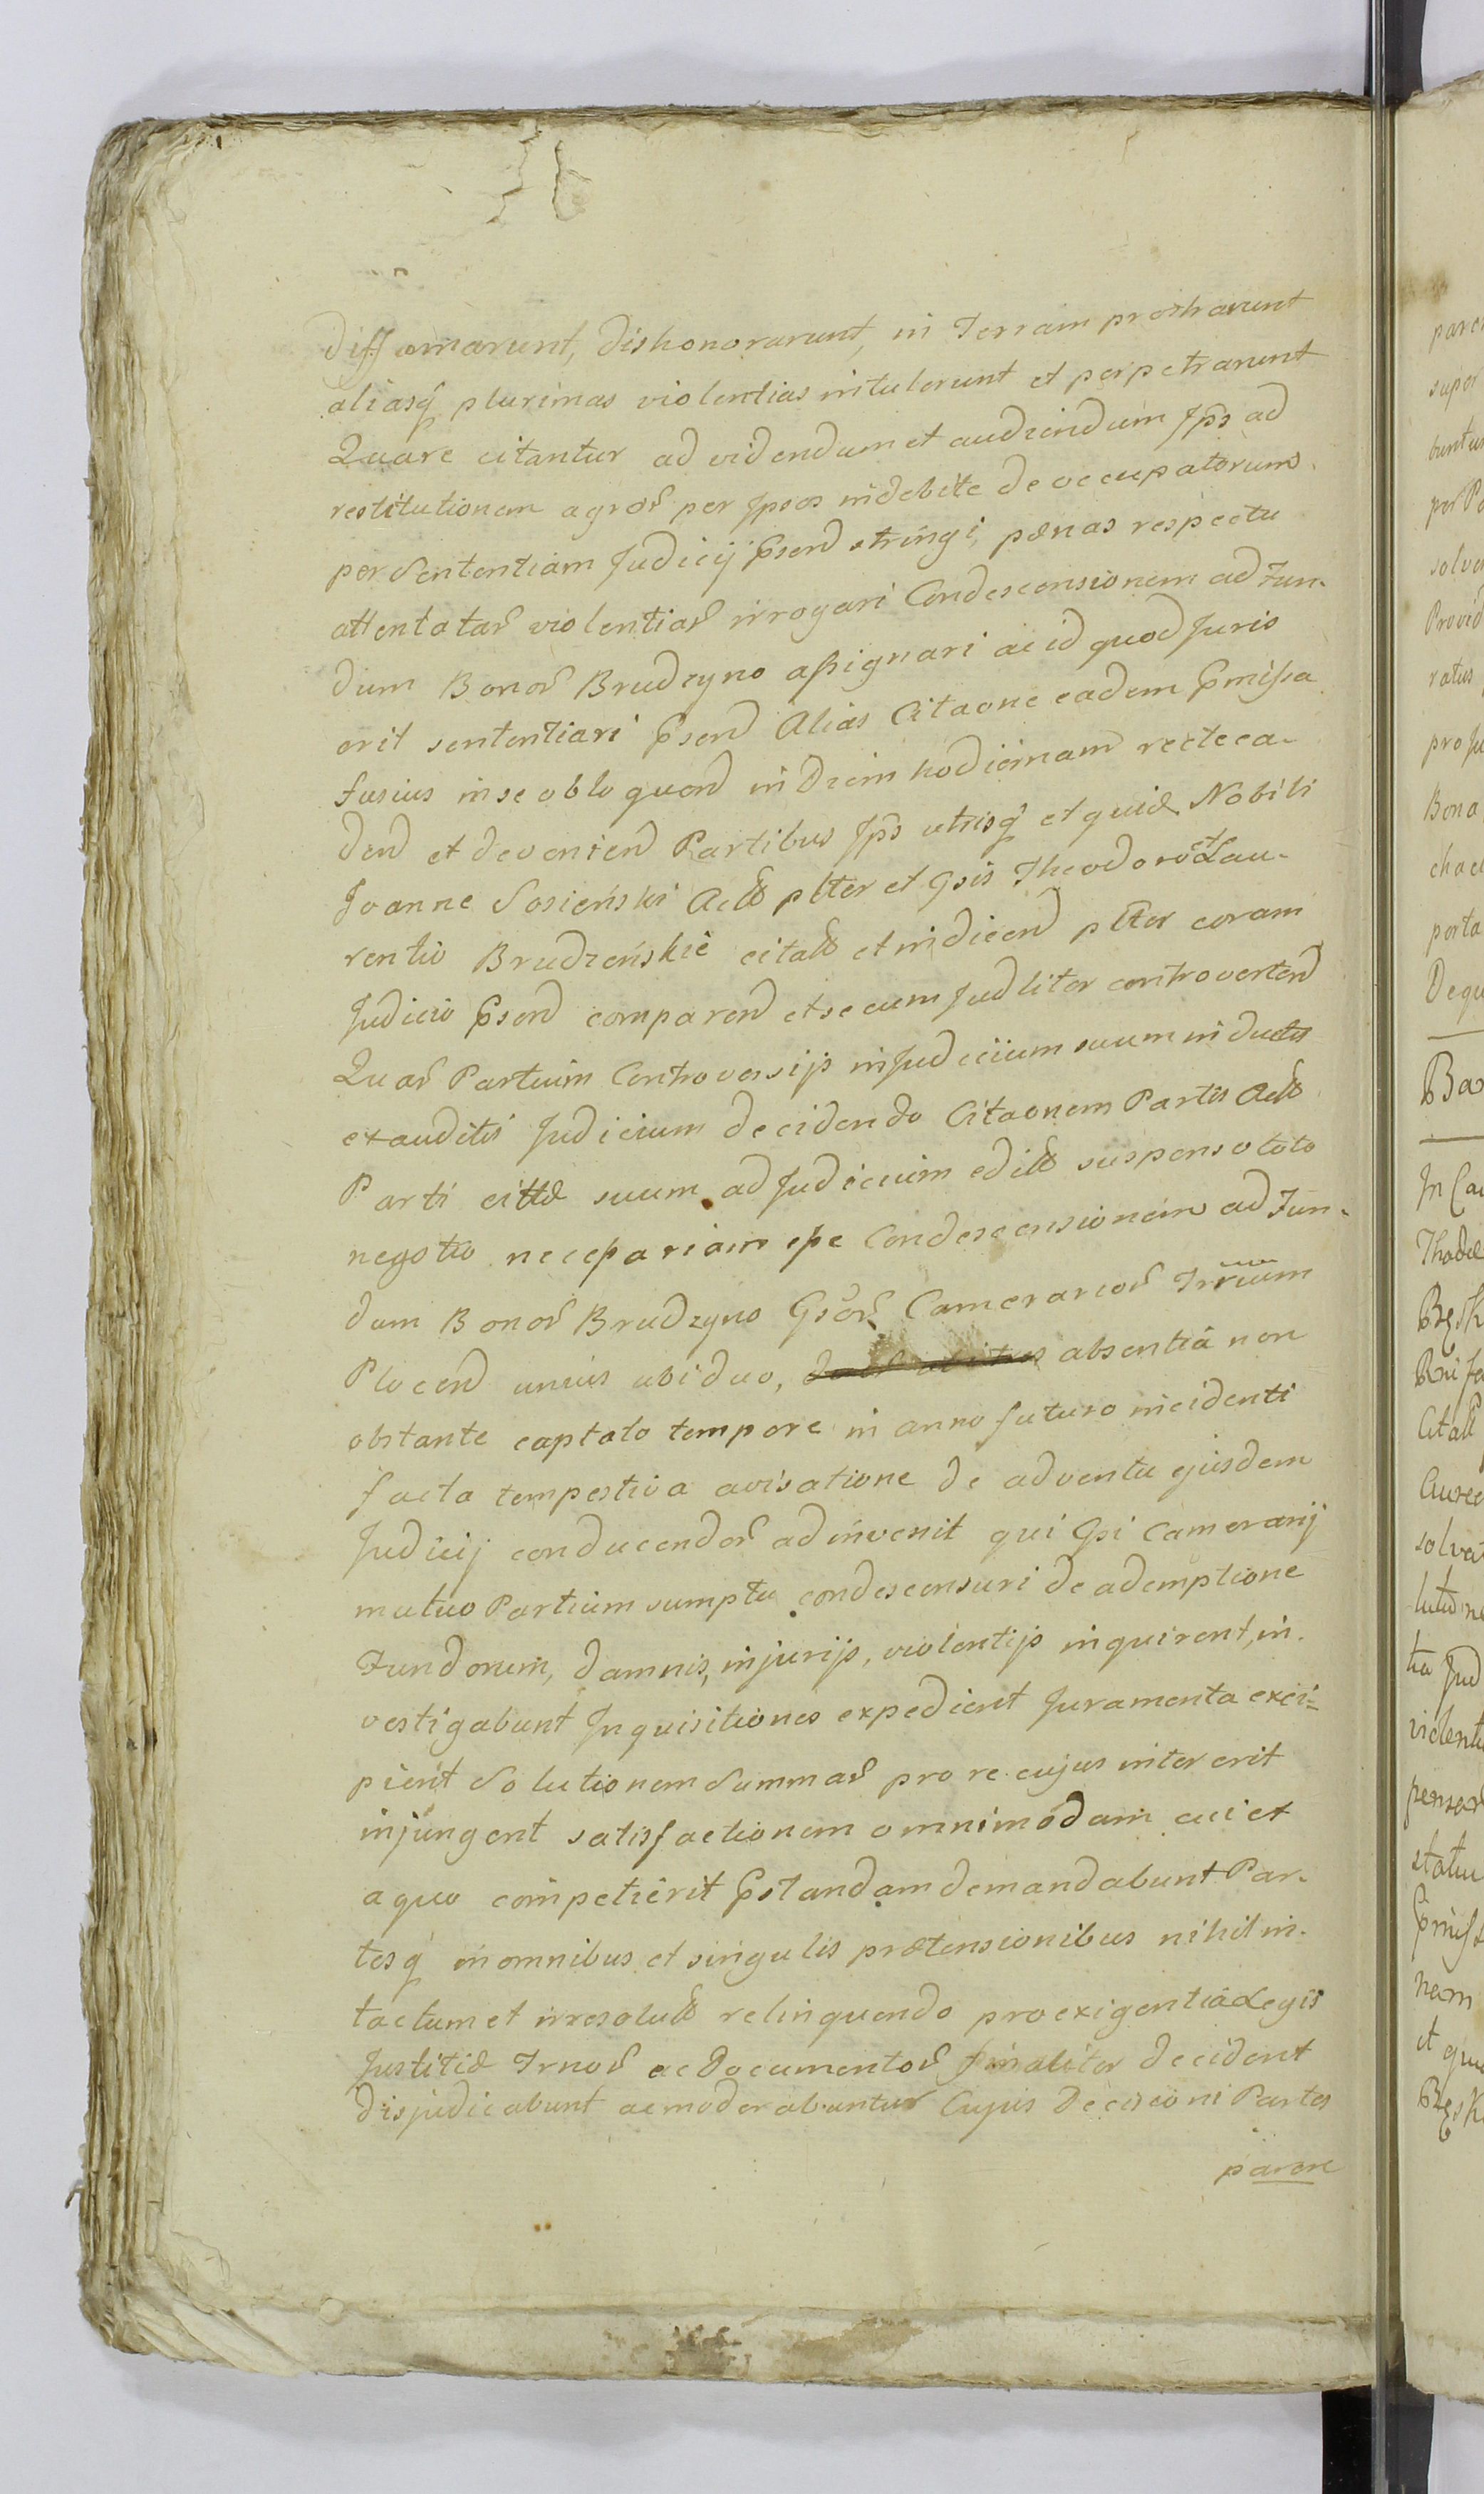 diffamarunt, dishonorarunt, in Terram prostrarunt
aliasq plurimas violentias intulerunt et perpetrarunt
Quare citantur ad videndum et audiendum Ips ad
restitutionem agror per Ipsos indebite deoccupatorum
per Sententiam Judicij Psend stringi, pænas respectu
attentatar violentiar irrogari Condescensionem ad Fun-
dum Bonor Brudzyno assignari ac id quod Juris
erit sententiari Psend Alias Citaone eadem Pmissa
fusius in se obloquend in Diem hodiernam recte ca-
dend et deveniend Partibus Ips utrisq et quidē Nobili
Joanne Sosieński Acto plter et Gsis Theodoro et Lau-
rentio Brudzeńskie citato et indicend plter coram
Judicio Psend comparend et secum Judliter controvertend
Quar Partium Controversijs in Judicium suum inductis
exauditis Judicium decidendo Citaonem Partis Acto
Parti cittæ suum ad Judicium edito suspenso toto
negotio necessariam esse Condescensionem ad Fun-
dum Bonor Brudzyno Gsor Camerarior Trrium
Plocend unius ubi duo, absentiâ non
obstante captato tempore in anno futuro incidenti
facta tempestiva avisatione de adventu ejusdem
Judicij conducendor adinvenit qui Gsi Camerarij
mutuo Partium sumptu condescensuri de ademptione
Fundorum, damnis, injurijs, violentijs inquirent, in-
vestigabunt Inquisitiones expedient Juramenta exci-
pient Solutionem Summar pro re cujus intererit
injungent satisfactionem omnimodam cui et
a quo competierit Pstandam demandabunt Par-
tesq in omnibus et singulis prætensionibus nihil in-
tactum et irresoluto relinquendo pro exigentiâ Legis
Justitiæ Trnor ac Documentor finaliter decident
disjudicabunt ac moderabuntur Cujus Decisioni Partes
parere